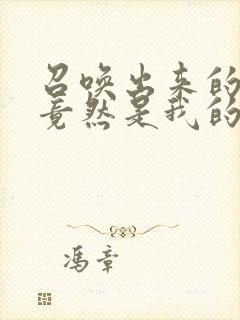 召唤出来的
竟然是我的
冯章